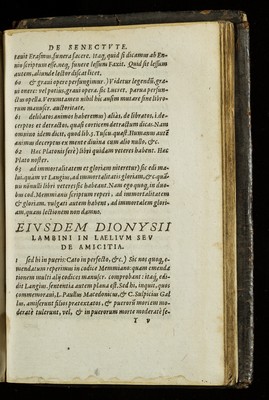 DE SENECTVTE.
tauit Erasmus, funera facere. Itaq; quid si dicamus ab En-
nio scriptum esse, neq; funere lessum Faxit. Quid sit lessum
autem, aliunde lector discat licet,
60 & graui opere perfungimur.) Videtur legendũ, gra-
ui onere: vel potius, graui opera. sic Lucret. parua perfun-
ctus opella. Veruntamen nihil hic ausim mutare sine libro-
rum manuscr. auctoritate.
61 delibatos animos haberemus) alias, de libratos, i. de-
cerptos et detractos. quasi corticem detractum dicas. Nam
omnino idem dicit, quod lib. 5. Tuscu. quæst. Humanus autẽ
animus decerptus ex mente diuina cum alio nullo, &c.
62 Hac Platonis ferè) libri quidam veteres habent. Hac
Plato noster.
63 ad immortalitatem et gloriam niteretur) sic edi ma-
lui. quàm vt Langius, ad immortalitatis gloriam, et quã-
uis nõnulli libri veteres sic habeant. Nam ego quoq; in duo-
bus cod. Memmianis scriptum reperi, ad immortalitatem
& gloriam. vulgati autem habent, ad immortalem glori-
am. quam lectionem non damno.
EIVSDEM DIONYSII
LAMBINI IN LAELIVM SEV
DE AMICITIA.
1 sed hi in pueris: Cato in perfecto, &c.) Sic nos quoq; e-
mendatum reperimus in codice Memmiano: quam emenda
tionem multi alij codices manuscr. comprobant: itaq; edi-
dit Langius. sententia autem plana est. Sed hi, inquit, quos
commemoraui, L. Paullus Macedonicus, & C. Sulpicius Gal
lus, amiserunt filios prætextatos, & puerorũ mortem mo-
deratè tulerunt, vel, & in puerorum morte moderatè se-
T v